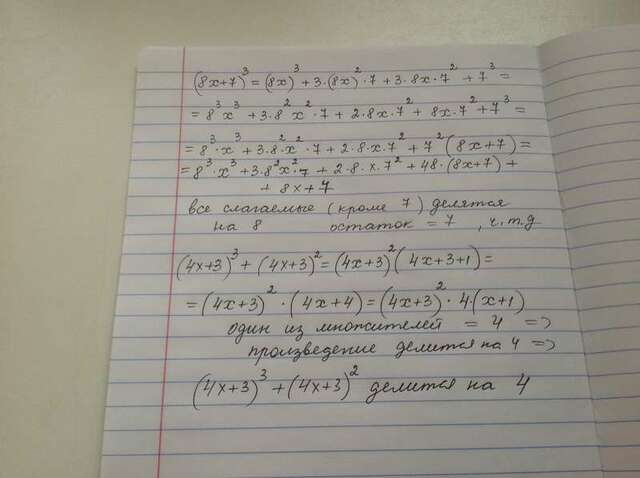 (8x+7)³ = (8x)³ + 3·(8x)²·7 + 3·8x·7² + 7³ =
= 8³x³ + 3·8²x²·7 + 2·8x·7² + 8x·7² + 7³ =
= 8³·x³ + 3·8²x²·7 + 2·8·x·7² + 7²(8x+7) =
= 8³·x³ + 3·8²x²·7 + 2·8·x·7² + 48·(8x+7) +
+ 8x+7
все слагаемые (кроме 7) делятся
на 8 остаток = 7, ч.т.д
(4x+3)³ + (4x+3)² = (4x+3)²(4x+3+1) =
= (4x+3)²·(4x+4) = (4x+3)²·4·(x+1)
один из множителей = 4 =>
произведение делится на 4 =>
(4x+3)³ + (4x+3)² делится на 4